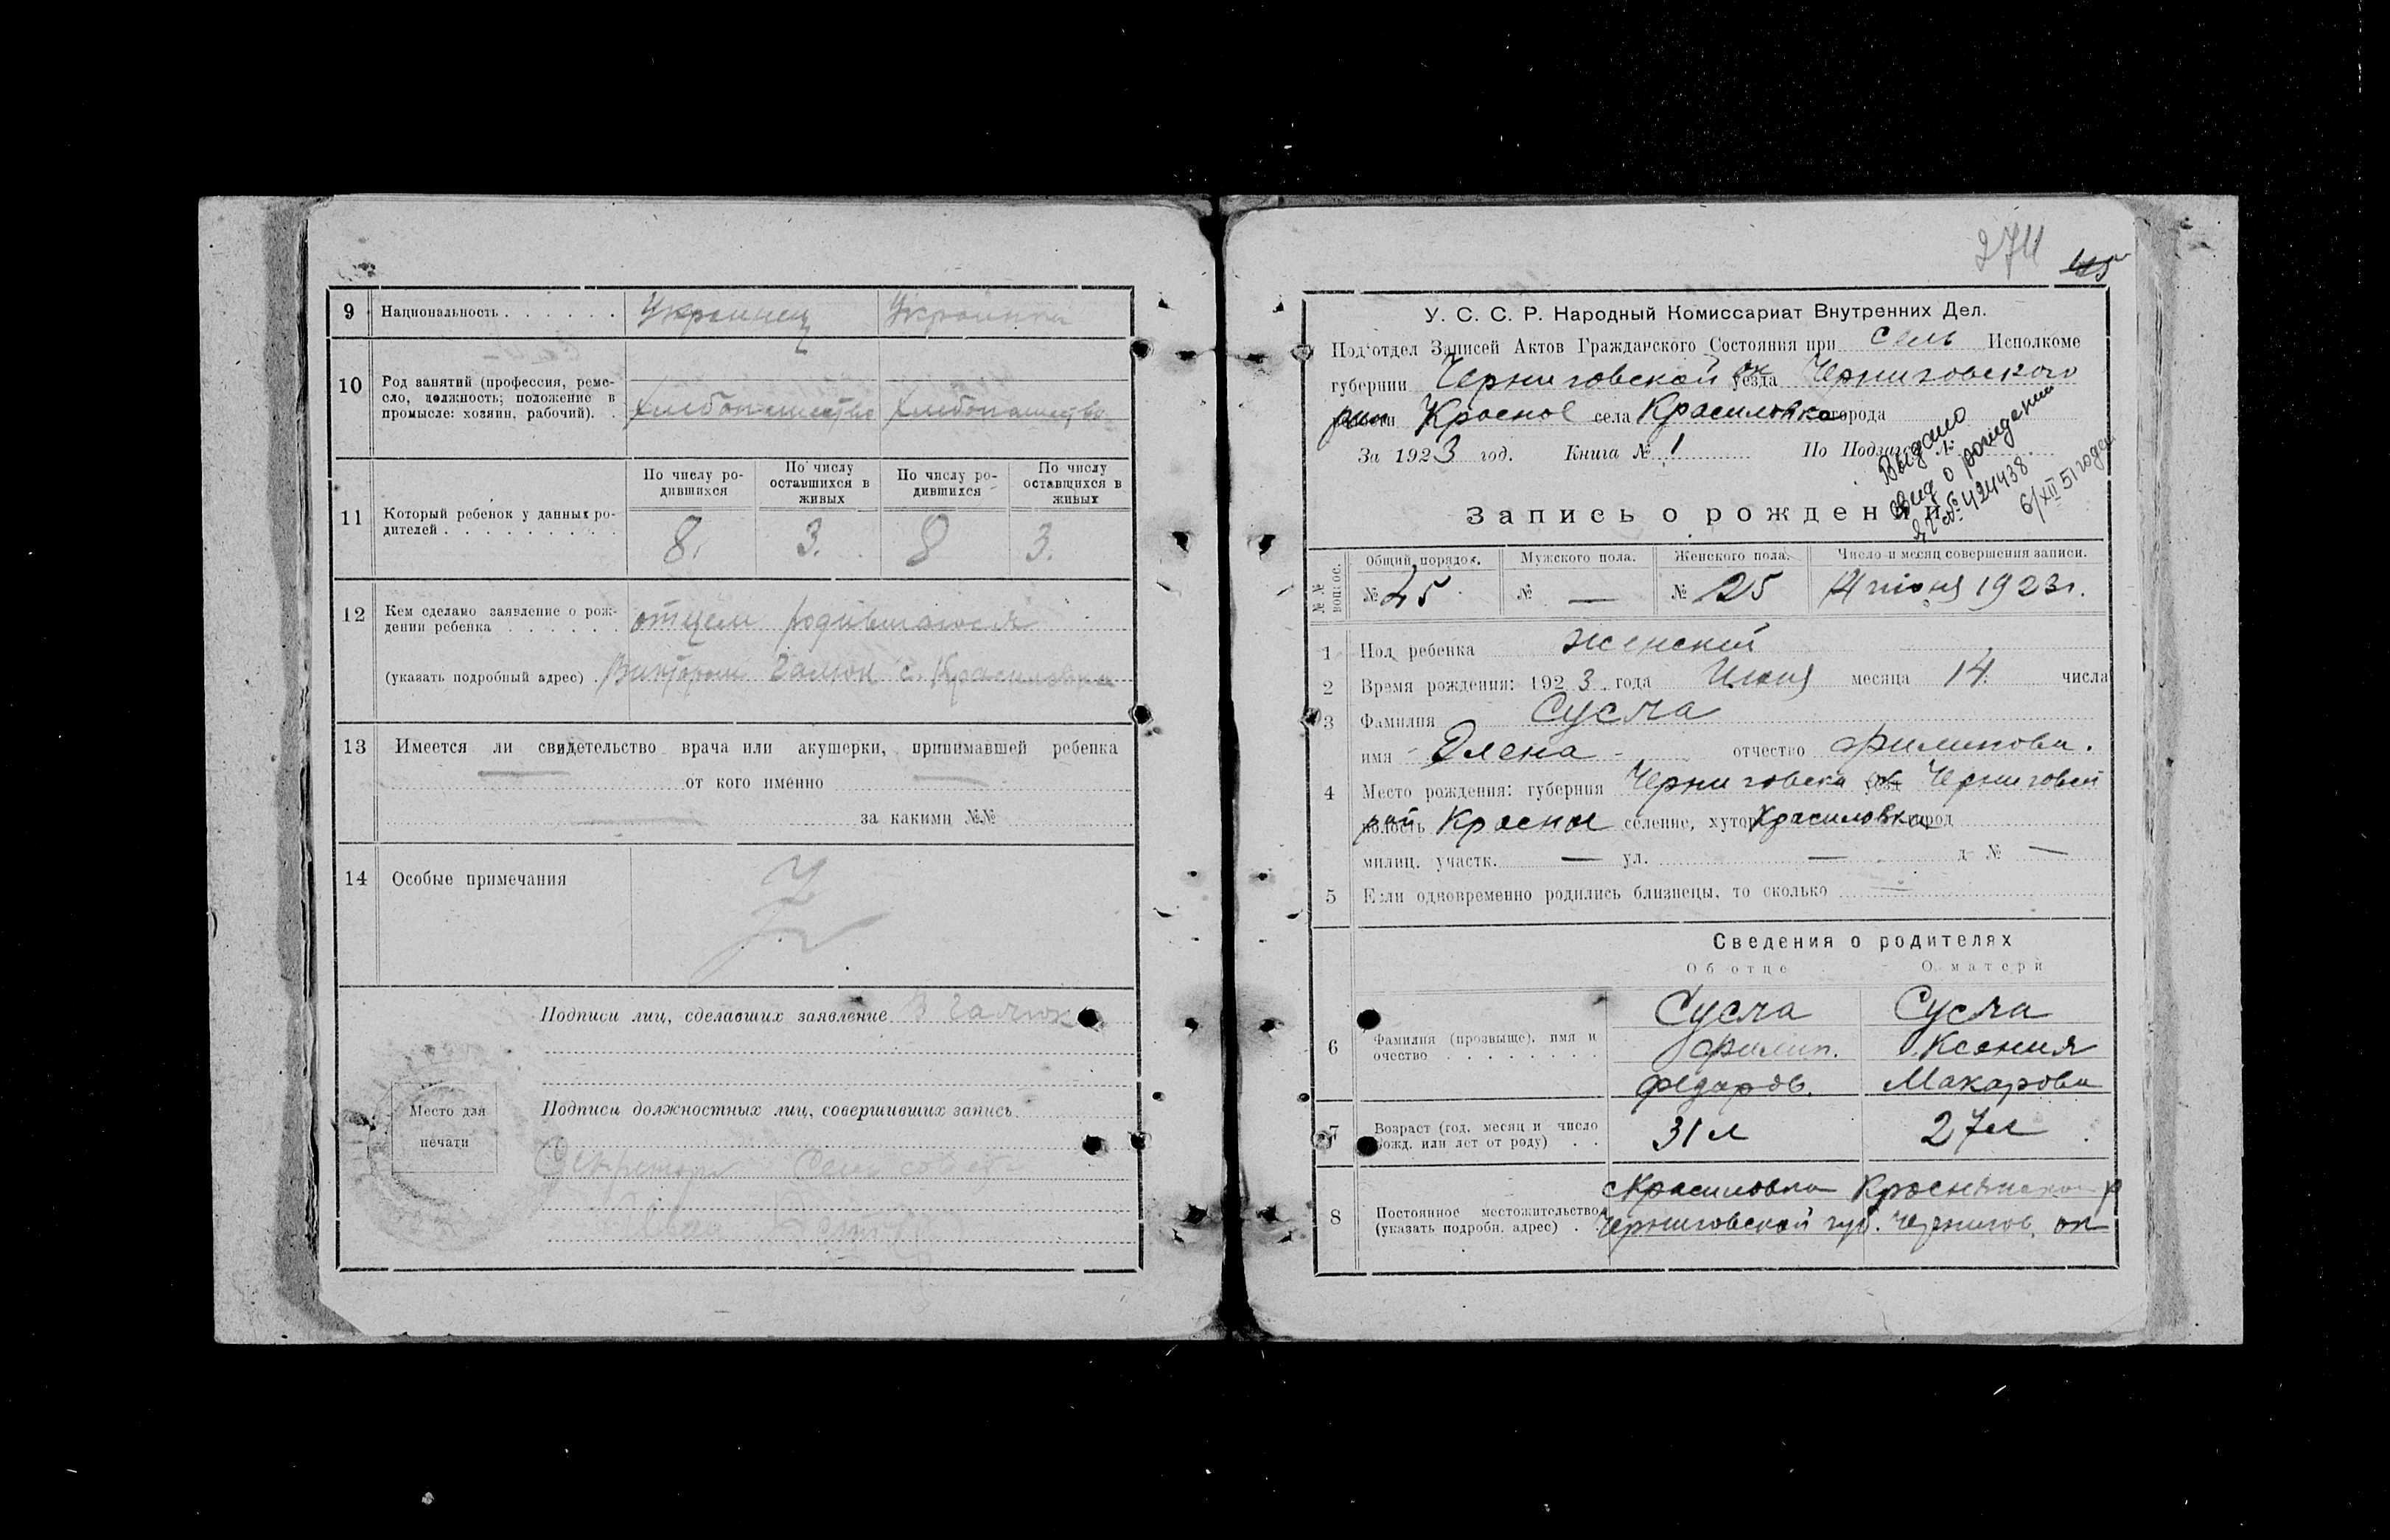 9 Национальность . . . . . . Украинец Украинка
10 Род занятий (профессия, реме-
сло, должность; положение в
промысле: хозяин, рабочий). . хлебопашество хлебопашество
По числу ро-
дившихся
По числу
оставшихся в
живых
По числу ро-
дившихся
По числу
оставшихся в
живых
11 Который ребенок у данных ро-
дителей . . . . . . . . . 8. 3. 8 3.
12 Кем сделано заявление о рож-
дении ребенка . . . . . . отцем родившагося
(указать подробный адрес) . Виктором Галюк с. Красиловки
13 Имеется ли свидетельство врача или акушерки, принимавшей ребенка
от кого именно
за какими №№
14 Особые примечания
Подписи лиц, сделавших заявление В Галюк
Подписи должностных лиц, совершивших запись
Место для
печати
Секретарь Сельсовета
274 45
У. С. С. Р. Народный Комиссариат Внутренних Дел.
Под'отдел Записей Актов Гражданского Состояния при Сель Исполкоме
губернии Черниговской уезда ок Черниговского
волости рон Красное села Красиловка города
За 1923 год. Книга № 1 По Подзаг
Выдано
свид о рождении
№ 424438.
6/XII 51 года
Запись о рождении
№№ вопрос.
Общий порядок. Мужского пола. Женского пола. Число и месяц совершения записи.
№ 45 № — № 25 14 июня 1923г.
1 Пол ребенка женский
2 Время рождения: 1923 года Июня месяца 14 числа
3 Фамилия Сусла
имя Олена отчество Филипова.
4 Место рождения: губерния Черниговска уезд ок Черниговск
волость рон Красное селение, хутор Красиловка город
милиц. участк. — ул. — д № —
5 Если одновременно родились близнецы, то сколько —
Сведения о родителях
Об отце О матери
6 Фамилия (прозвыще), имя и
очество . . . . . . . .
Сусла Сусла
Филип. Ксения
Федоров. Макарова
7 Возраст (год, месяц и число
рожд. или лет от роду) . . 31 л 27 л
8 Постоянное местожительство
(указать подробн. адрес) .
с Красиловка Краснянского р
Черниговской губ. Чернигов. ок